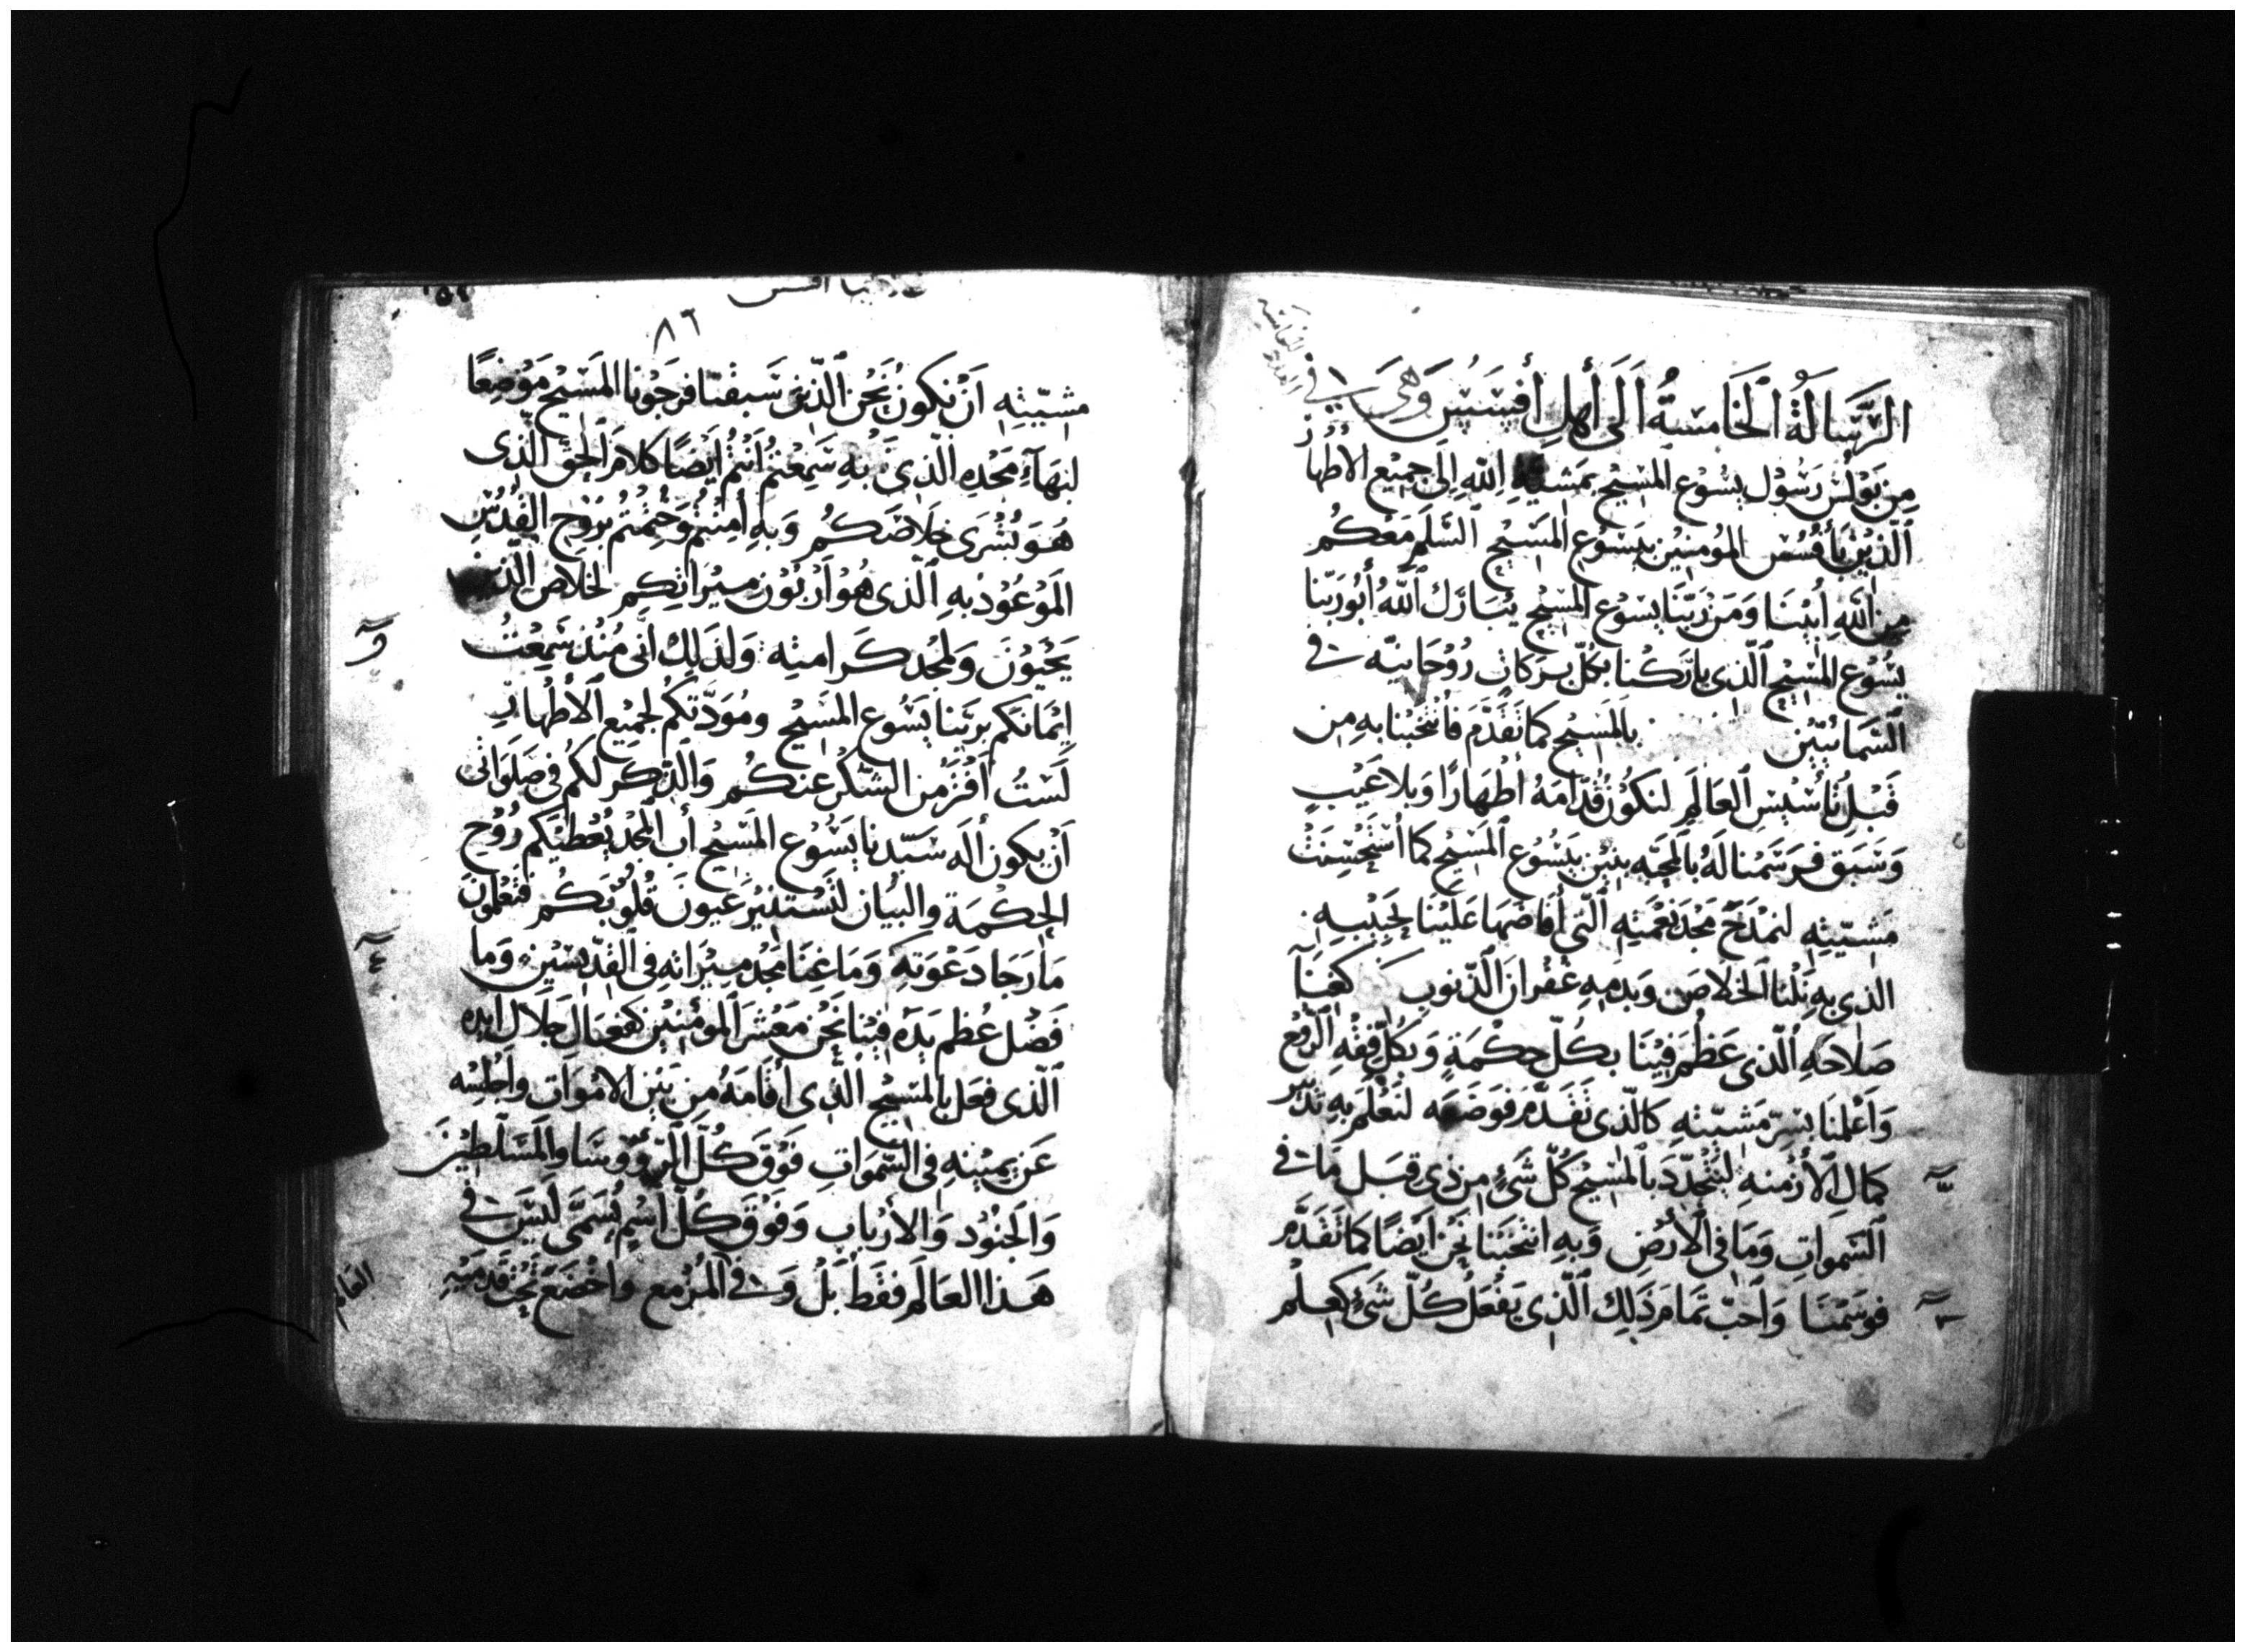 الرِّسَالَةُ ٱلخَامسَةُ اَلَى أهلِ أفسَسُسَ وَهيَ في
مِن بَوْلسَ رَسُوْل يسُوع المسَيح بمَشيّةِ اللهِ الَى جميع الأطهاُز
ٱلّذيْنَ بأفسُسَ المؤمنيْن بيَسُوع المسَيح السَّلَم مَعَكُم
مِن اللهِ اَبيْنَا وَمَن رَبّنَا يسَوع المسَيح يتبَارَك ٱللهُ أبُو رَبّنا
يسُوع المسَيح ٱلّذي بارَكنا بكُلّ بركات رُوْحَانيّه في
ٱلسَّمَائيّيْن بالمسَيح كما تقَدّمَ فأنتخَبْنا بهِ مِن
قَبْل تأسْيسِ ٱلعَالَم لنكُوْن قُدّامَهُ أطهَارًا وَبلا عَيْبٍ
وَسَبَق فرَسَمْنا لَهُ بالمحبّه بنيْن بيَسُوع ٱلمسَيح كما اُسْتَحْسِنَتْ
مَشيّتِهِ لنمْدَحَ مَجْدَ نعْمَتِهِ ٱلّتي أفاضَهَا عَليْنا بحَبيْبِهِ
الذي بهِ نِلْنا الخلاصَ وَبدمِهِ غفْران ٱلذّنوب كغِنَآ
صَلاحَهِ ٱلّذي عَظمَ فيْنَا بكلّ حكْمَةٍ وَبكُلِّ فقْهِ ٱلرّوْح
وَاَعْلمنَا بسِرّ مَشيّتِهِ كالّذي تَقَدَّم فوَضَعَه لنَعْلَم بهِ تَدْبيْر
كمال ٱلأزْمنهِ ليتجدّدَ بالمسيْح كُلّ شَئٍ مِن ذي قبَل مَا في
ٱلسّموَاتِ وَمَا في ٱلأرْض وَبهِ انتخَبَنا نَحْن اَيضًا كما تَقَدَّم
فوسَمْنَا وَاَحبّ تمَامَ ذَلِكَ ٱلّذي يَفْعَلُ كُلّ شَئٍ كعلم
٨٦
مشيّتِهِ اَنْ نكونُ نَحْن ٱلّذيْن سَبقْنا فرَجَوْنا المسَيْح مَوْضِعًا
لبهَآءِ مَجْدِهِ الّذي بهِ سَمِعْتم أنتمْ اَيْضًا كلامَ ٱلحَقّ الّذي
هُوَ بُشْرَى خَلاصَكُم وَبهِ اَمِنتمْ وَختمْتُم برُوْحِ القُدُسِ
المَوْعُوْد بهِ ٱلّذى هُوَ اَرْبُوْن ميْرَاثِكم لخلاص الّذيْن
يَحْيُوْنَ وَلمجْد كَرامتِه وَلذَلِكَ انّي مُنْذ سَمِعْتُ
ايْمَانكم برَبّنا يَسُوع المسَيْح ومُوَدّتكُم لجميْع ٱلأطْهار
لَسْتُ اَفْتر مِن الشّكْر عنكُم وَالذِّكر لكُم في صَلَوَاتي
اَنْ يكون ألَه سَيّدنا يَسُوع المسَيْح أب ٱلمجْد يعْطيْكم رُوْح
الحِكْمَة والبيَان لتَسْتنيْر عَيونَ قُلُوْبكُم فتعْلمون
مَا رَجَا دَعْوَتِهِ وَمَا غِنَا مَجْد ميْرَاثِهِ في ٱلقدّيسيْن وَما
فَضْل عُظم يَدَهِ فيْنا نَحْن مَعْشَر ٱلموْمنيْن كفعَال جَلال اَيْده
ٱلّذى فعَل بالمسَيْح الّذي أقامَهُ مِن بَيْن الامْوَات واَجْلسَه
عَن يميْنهِ في السّموَاتِ فَوْق كُلّ ٱلرّؤوسَا والمسَلّطيْنَ
وَالجنُوْد وَالأرْباب وَفوْقَ كُلّ اسْمٍ يُسَمّى لَيْسَ في
هَذا العَالم فقَط بَلْ وَ في المزْمع واَخْضَع تَحْتَ قَدَميْهِ
العَالم